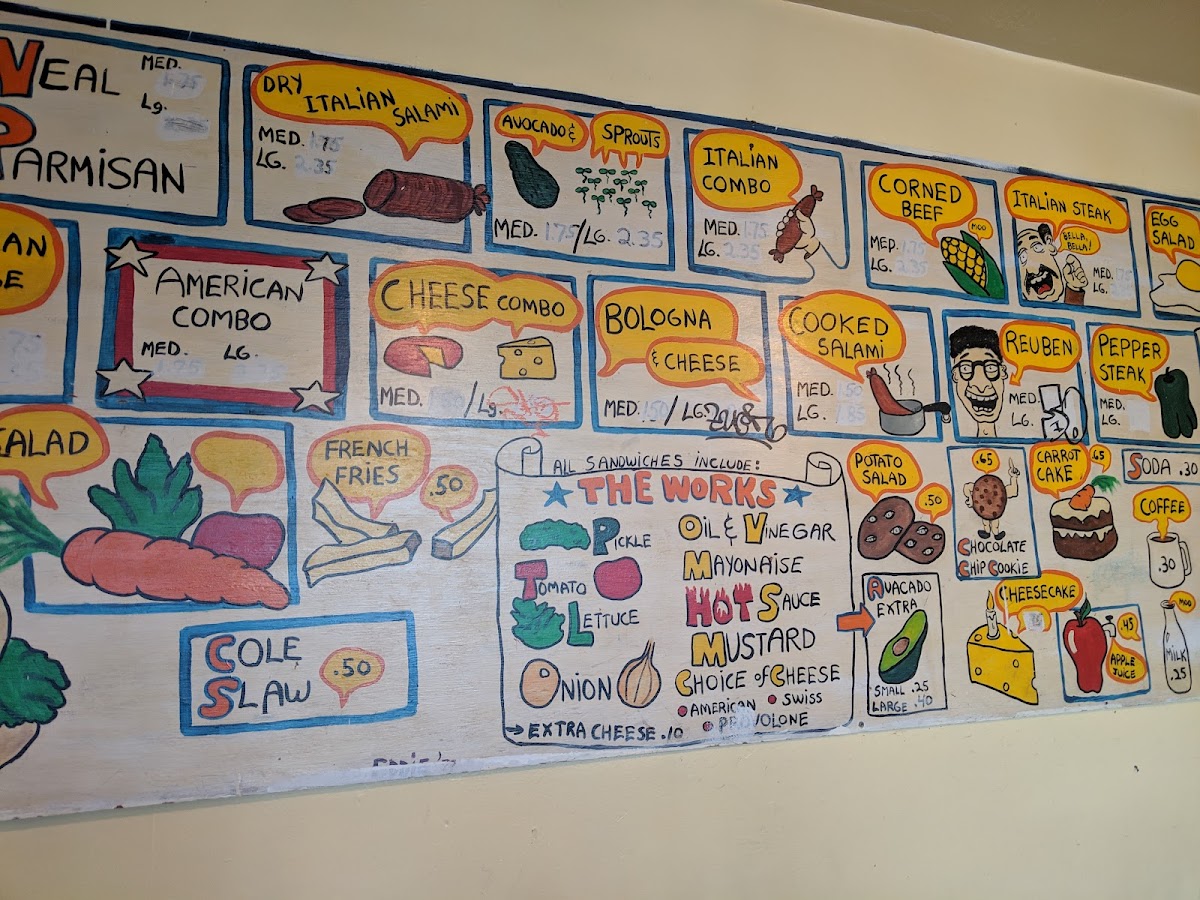 VEAL
PARMISAN
MED.
Lg.
DRY
ITALIAN
SALAMI
MED. 1.75
LG. 2.35
AVOCADO &
SPROUTS
MED. 1.75/LG. 2.35
ITALIAN
COMBO
MED. 1.75
LG. 2.35
CORNED
BEEF
MED. 1.75
LG. 2.35
MOO
ITALIAN STEAK
BELLA,
BELLA!
MED.
LG.
EGG
SALAD
AMERICAN
COMBO
MED. LG.
CHEESE COMBO
MED. /Lg.
BOLOGNA
& CHEESE
MED. 1.50/LG.
COOKED
SALAMI
MED. 1.50
LG. 1.85
REUBEN
MED.
LG.
PEPPER
STEAK
MED.
LG.
SALAD
FRENCH
FRIES
.50
COLE
SLAW
.50
ALL SANDWICHES INCLUDE:
THE WORKS
PICKLE
TOMATO
LETTUCE
ONION
OIL & VINEGAR
MAYONAISE
HOT SAUCE
MUSTARD
CHOICE of CHEESE
AMERICAN SWISS
PROVOLONE
EXTRA CHEESE .10
POTATO
SALAD
.50
AVACADO
EXTRA
SMALL .25
LARGE .40
.65
CHOCOLATE
CHIP COOKIE
CARROT
CAKE
.65
CHEESECAKE
SODA .30
COFFEE
.30
.45
APPLE
JUICE
MOO
MILK
.25